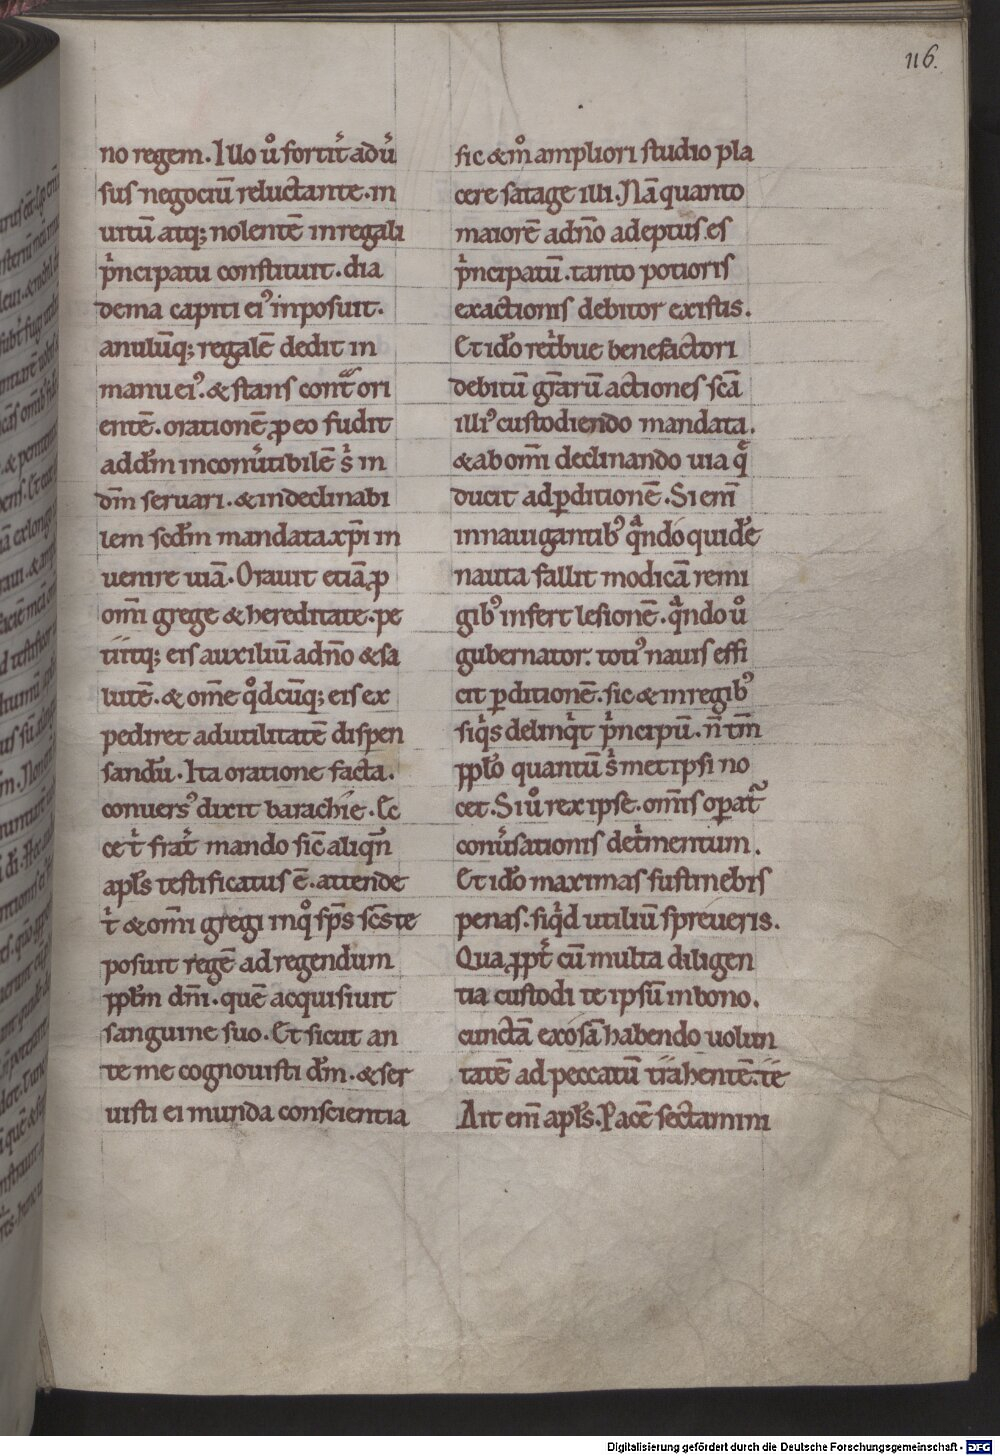 116.
no regem. Illo ů fortit̓ adu̓
sus negociū reluctante. in
uitū atq; nolentē in regali
pͥncipatu constituit. dia
dema capiti ei᾿ inposuit.
anulūq; regalē dedit in
manu ei᾿. & stans cont̄ ori
entē. orationē ꝓ eo fudit
ad dn̄m inconu̓tibilē s̓ in
dn̄m seruari. & indeclinabi
lem scd̄m mandata xp̄i in
uenire uiā. Orauit etiā ꝓ
omī grege & hereditate. pe
tiitq; eis auxiliū a dn̄o & sa
lutē. & om̄e qͦdcūq; eis ex
pediret ad utilitatē dispen
sandū. Ita oratione facta.
conuers᾿ dixit barachie. Ec
ce tͥ frat̓ mando sic̄ aliqn̄
apl̄s testificatus ē. attende
tͥ & omī gregi inqͦ sp̄s sc̄s te
posuit regē ad regendum
ppl̄m dn̄i. quē acquisiuit
sanguine suo. Et sicut an
te me cognouisti dn̄m. & ser
uisti ei munda conscientia
sic & mͦ ampliori studio pla
cere satage illi. Nā quanto
maiorē a dn̄o adeptus es
pͥncipatū. tanto potioris
exactionis debitor existis.
Et ido retͥbue benefactori
debitū gr̄arū actiones sc̄a
illi᾿ custodiendo mandata.
& ab omī declinando uia qͣ
ducit ad ꝑditionē. Si enī
in nauigantib᾿ qͣndo quidē
nauta fallit modicā remi
gib᾿ infert lesionē. qͣndo ů
gubernator. toti᾿ nauis effi
cit ꝑditionē. sic & in regib᾿
siqͥs delinqͥt pͥncipū. n̄ tm̄
ppl̄o quantū s̓ met ipsi no
cet. Si ů rex ipse. omīs opat᷑
conu̓sationis detͥmentum.
Et ido maximas sustinebis
penas. siqͥd utiliū spreueris.
Qua ꝓpt̓ cū multa diligen
tia custodi te ipsū in bono.
cunctā exosā habendo uolun
tatē ad peccatū trahentē te
Ait enī apl̄s. Pacē sectamini
Digitalisierung gefördert durch die Deutsche Forschungsgemeinschaft - DFG